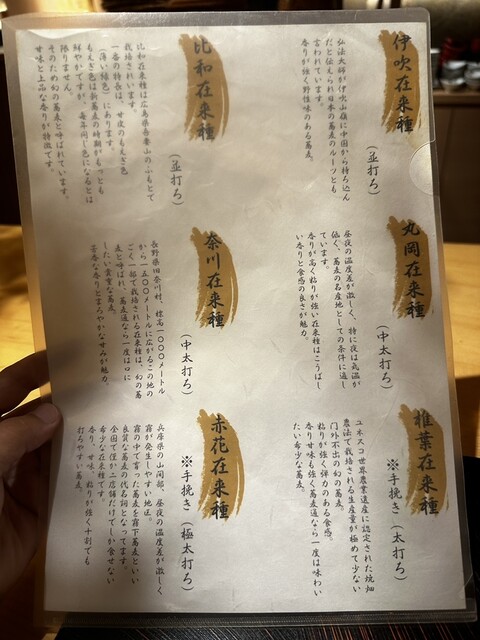 伊吹在来種
(並打ち)
弘法大師が伊吹山嶺に中国から持ち込ん
だと伝えられ日本の蕎麦のルーツとも
言われています。
香りが強く野性味のある蕎麦。
比和在来種
(並打ち)
比和在来種は広島県吾妻山のふもとで
栽培されています。
一番の特長は、甘皮のもえぎ色
(薄い緑色)にあります。
もえぎ色は新蕎麦の時期がもっとも
鮮やかですが、毎年同じ色になるとは
限りません。
そのため幻の蕎麦と呼ばれています。
甘味と上品な香りが特徴です。
丸岡在来種
(中太打ち)
昼夜の温度差が激しく、特に夜は気温が
低く、蕎麦の名産地としての条件に適し
ています。
香りが高く粘りが強い在来種はこうばし
い香りと食感の良さが魅力。
奈川在来種
(中太打ち)
長野県旧奈川村、標高一〇〇〇メートル
から一五〇〇メートルに広がるこの地の
ごく一部で栽培される在来種は、幻の蕎
麦と呼ばれ、蕎麦通なら一度は口に
したい貴重な蕎麦。
芳香な香りとまろやかな甘みが魅力。
椎葉在来種
※手挽き(太打ち)
ユネスコ世界農業遺産に認定された焼畑
農法で栽培される生産量が極めて少ない
門外不出の幻の蕎麦。
粘りが強く弾力のある食感。
香り甘味も強く蕎麦通なら一度は味わい
たい希少な蕎麦。
赤花在来種
※手挽き(極太打ち)
兵庫県の山間部、昼夜の温度差が激しく
霧が発生しやすい地花。
霧の中で育った蕎麦を霧下蕎麦といい
良質な蕎麦の代名詞となってます。
全国で僅かな店舗だけでしか食せない
希少な在来種です。
香り、甘味、粘りが強く十割でも
打ちやすい蕎麦。